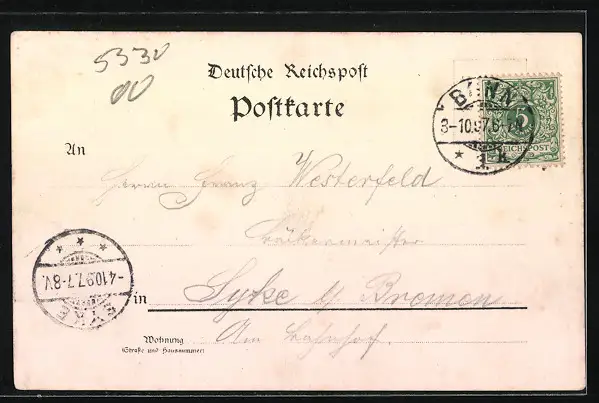 5330
00
Deutsche Reichspost
Postkarte
BONN
3-10.97.6-7N.
* 1.R.
5
REICHSPOST
An
Herrn Franz Westerfeld
Bäckermeister
in Syke b/ Bremen
Am Bahnhof.
Wohnung
(Straße und Hausnummer)
SYKE
-4.10.97.7-8V.